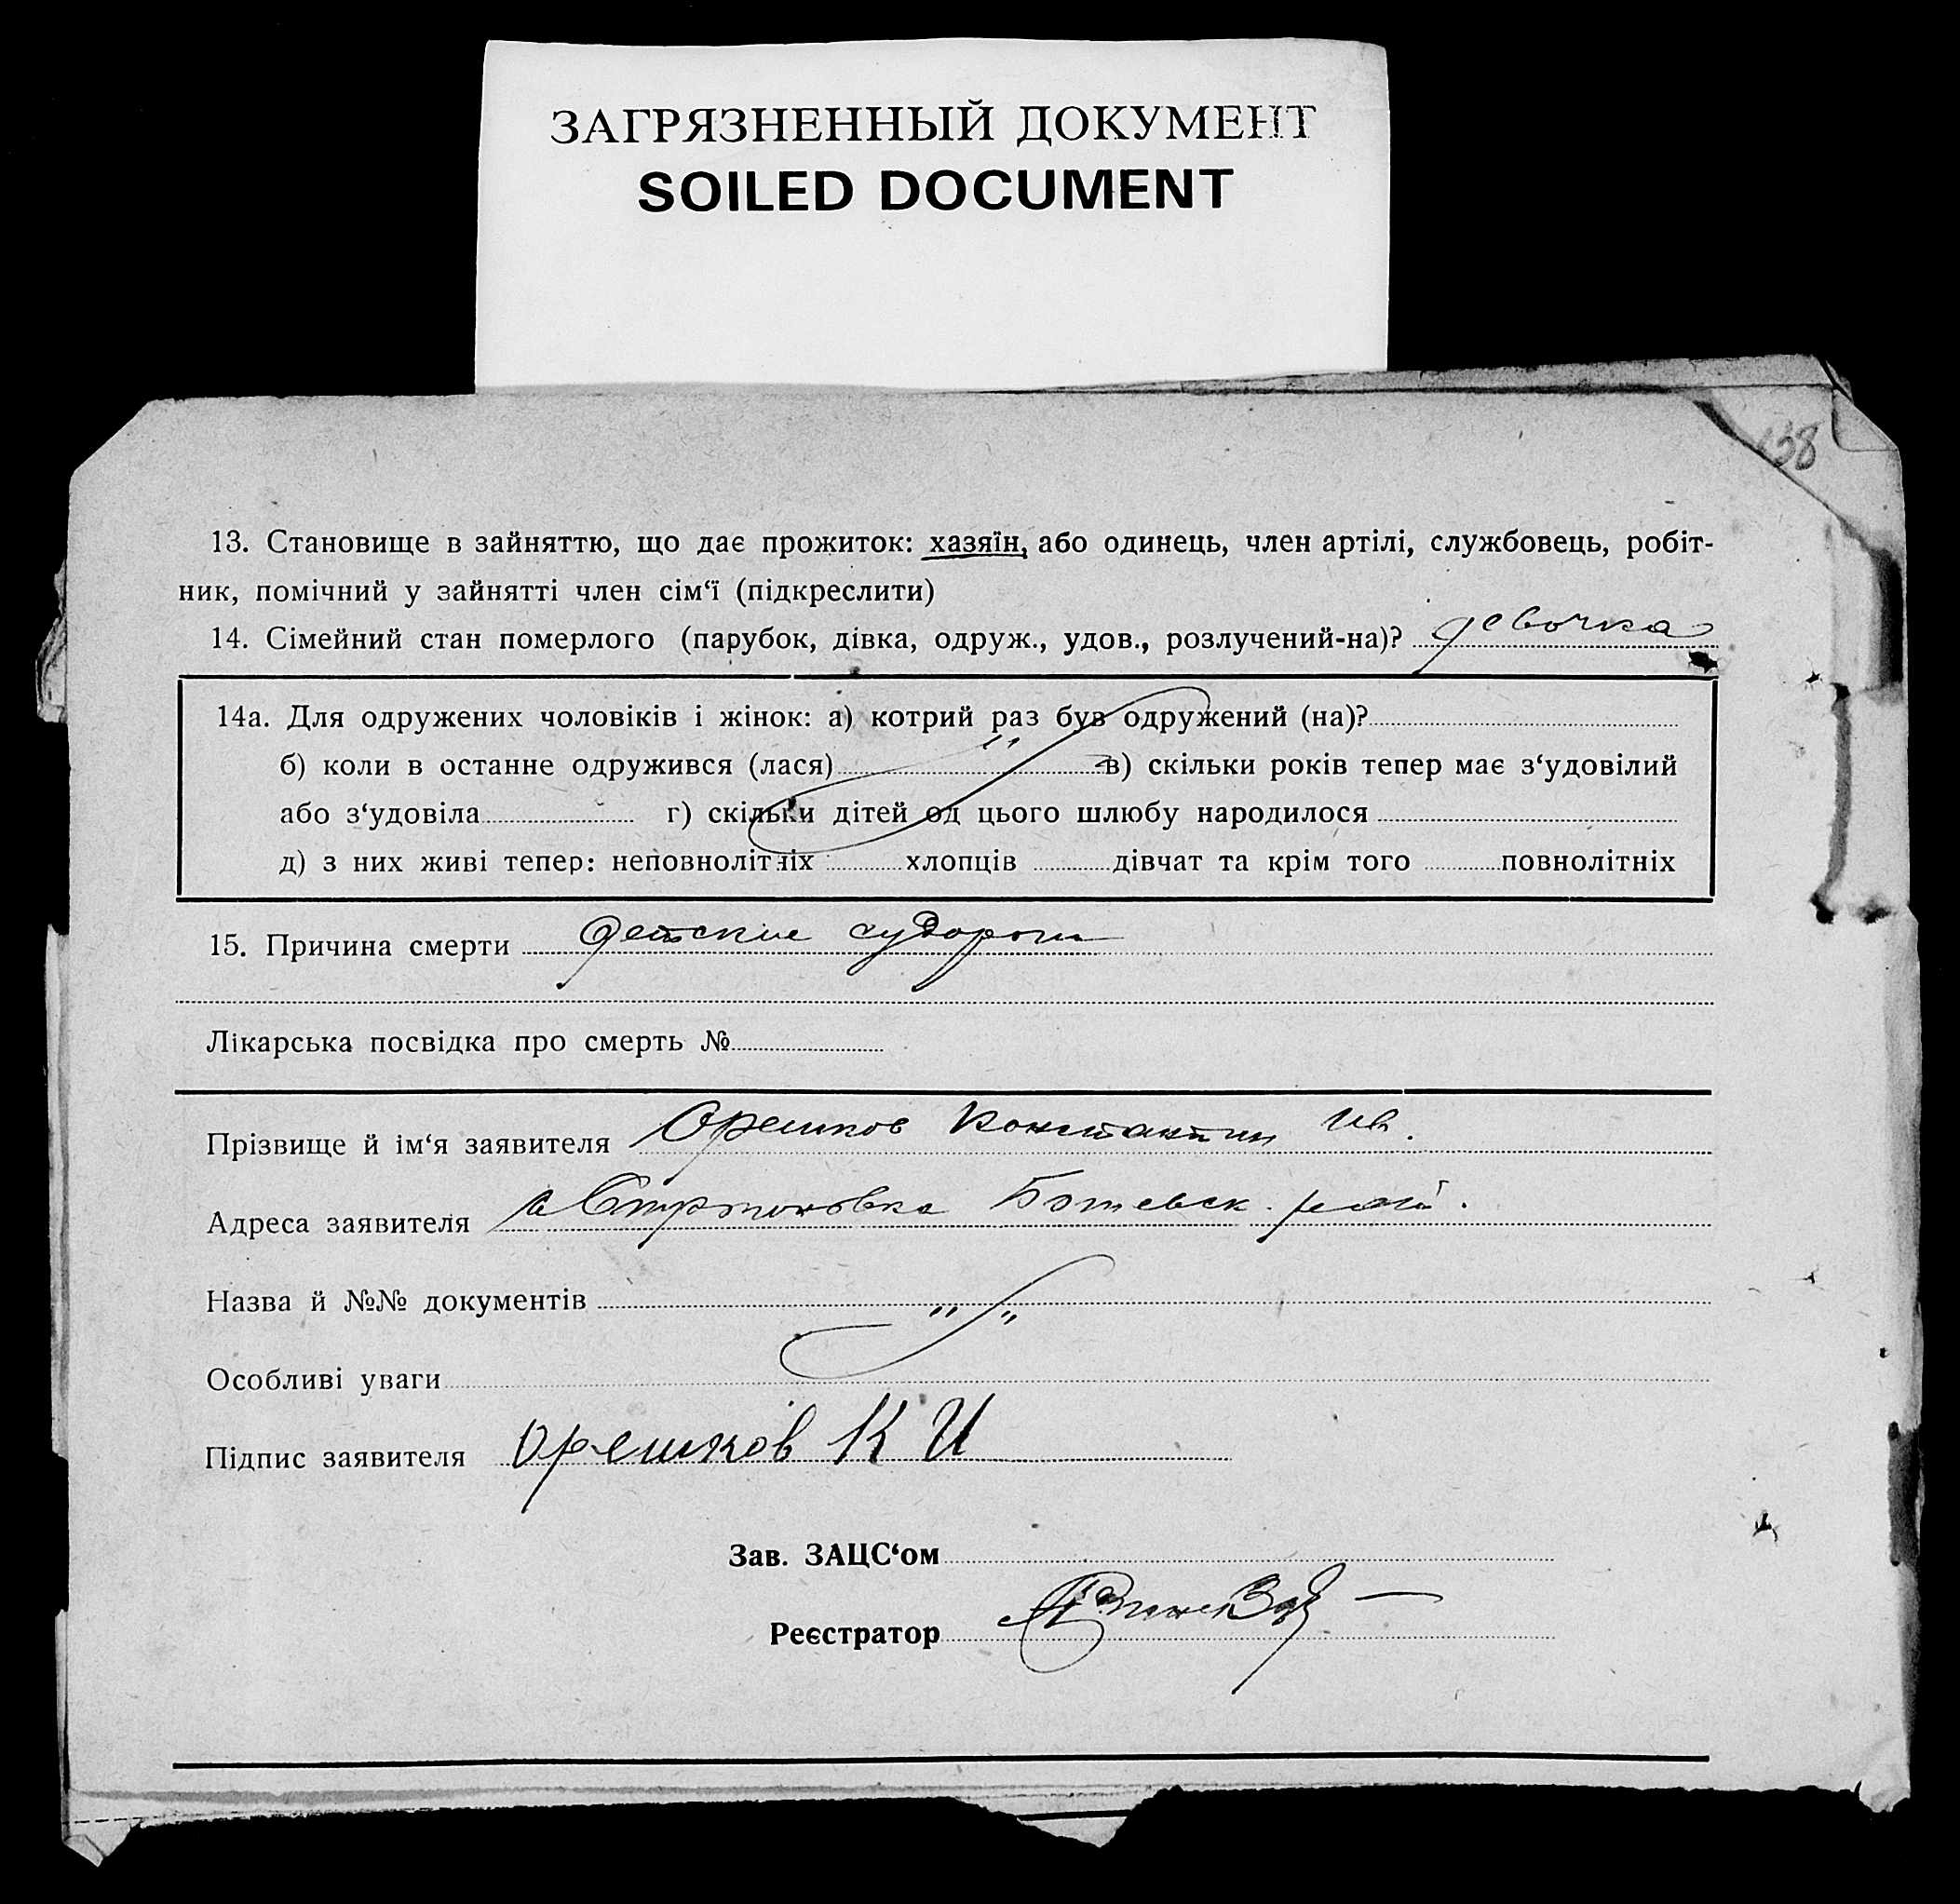 ЗАГРЯЗНЕННЫЙ ДОКУМЕНТ
SOILED DOCUMENT
138
13. Становище в зайняттю, що дає прожиток: хазяїн, або одинець, член артілі, службовець, робіт-
ник, помічний у зайнятті член сім‘ї (підкреслити)
14. Сімейний стан померлого (парубок, дівка, одруж., удов., розлучений-на)? девочка
14а. Для одружених чоловіків і жінок: а) котрий раз був одружений (на)?
б) коли в останне одружився (лася) " в) скільки років тепер має з‘удовілий
або з‘удовіла г) скільки дітей од цього шлюбу народилося
д) з них живі тепер: неповнолітніх хлопців дівчат та крім того повнолітніх
15. Причина смерти Детские судороги
Лікарська посвідка про смерть №
Прізвище й ім‘я заявителя Орешков Константин Ив.
Адреса заявителя с Ботевск. рай.
Назва й №№ документів " "
Особливі уваги
Підпис заявителя Орешков К И
Зав. ЗАЦС‘ом
Реєстратор